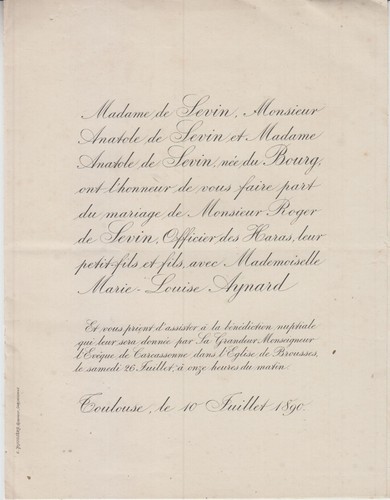 Madame de Sevin, Monsieur
Anatole de Sevin et Madame
Anatole de Sevin, née du Bourg,
ont l'honneur de vous faire part
du mariage de Monsieur Roger
de Sevin, Officier des Haras, leur
petit-fils et fils, avec Mademoiselle
Marie-Louise Aynard
Et vous prient d'assister à la bénédiction nuptiale
qui leur sera donnée par Sa Grandeur Monseigneur
l'Evêque de Carcassonne dans l'Eglise de Brousses,
le samedi 26 Juillet, à onze heures du matin.
Toulouse, le 10 Juillet 1890